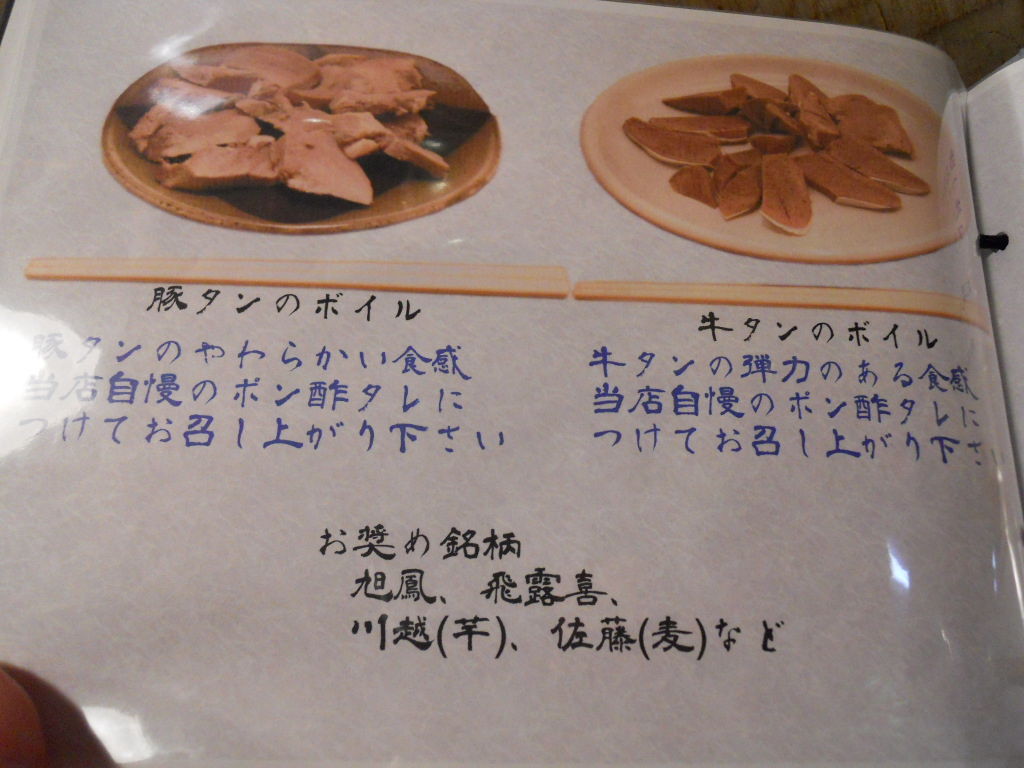 豚タンのボイル
豚タンのやわらかい食感
当店自慢のポン酢タレに
つけてお召し上がり下さい
牛タンのボイル
牛タンの弾力のある食感
当店自慢のポン酢タレに
つけてお召し上がり下さ
お奨め銘柄
旭鳳、飛露喜、
川越(芋)、佐藤(麦)など